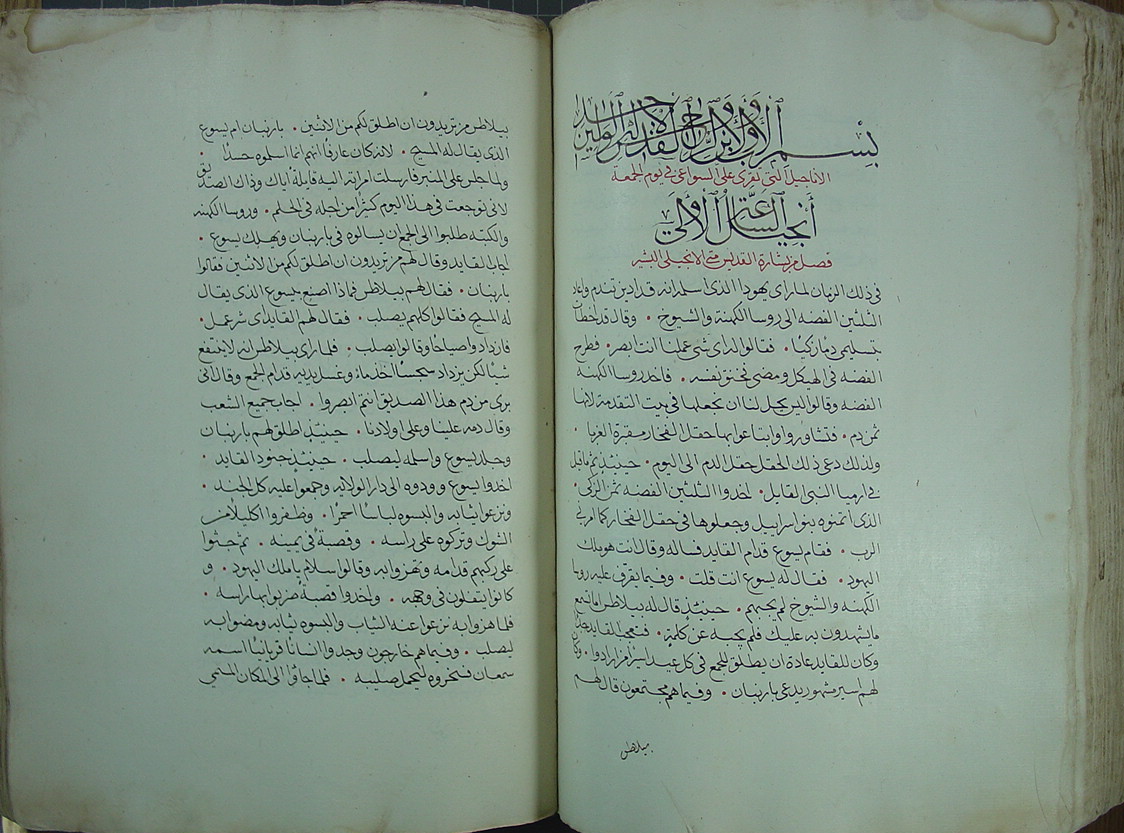 بسم الاب والابن والروح القدس الاله الواحد امين
الاناجيل التي تقرى على السواعي في يوم الجمعة
أنجيل الساعة الأولى
فصل من بشارة القديس متى الانجيلي البشير
في ذلك الزمان لما راى يهودا الذي اسلمه انه قد ادين تندم واعاد
الثلثين الفضه الى روسا الكهنة والشيوخ • وقال قد اخطات
بتسليمي دمًا زكيًا • فقالوا له اي شي علينا انت ابصر • فطرح
الفضه في الهيكل ومضى فخنق نفسه • فاخد روسا الكهنه
الفضه وقالوا ليس يحل لنا ان نجعلها في بيت التقدمة لانها
ثمن دم • فتشاوروا وابتاعوا بها حقل الفخار مقبرة الغربا •
ولذلك دعي ذلك الحقل حقل الدم الى اليوم • حينيذ تم ما قيل
في ارميا النبي القايل • اخدوا الثلثين الفضه ثمن الزكي •
الذي اثمنوه بنو اسراييل وجعلوها في حقل الفخار كما امرني
الرب • فقام يسوع قدام القايد فساله وقال انت هو ملك
اليهود • فقال له يسوع انت قلت • وفيما يقرف عليه روسا
الكهنه والشيوخ لم يجبهم • حينيذٍ قال له بيلاطس اما تسمع
ما يشهدون به عليك فلم يجبه عن كلمةٍ • فتعجب القايد جدًا
وكان للقايد عادة ان يطلق للجمع في كل عيد اسيرًا من ارادوا • وكان
لهم اسير مشهور يدعى باربنان • وفيما هم مجتمعون قال لهم
بيلاطس
بيلاطس من تريدون ان اطلق لكم من الاثنين • باربنان ام يسوع
الذي يقال له المسيح • لانه كان عارفًا انهم انما اسلموه حسدًا •
ولما جلس على المنبر فارسلت امراته اليه قايلة اياك وذاك الصديق
لاني توجعت في هذا اليوم كثيرًا من اجله في الحلم • وروسا الكهنه
والكتبه طلبوا الى الجمع ان يسالوه في باربنان ويهلك يسوع •
اجاب القايد وقال لهم من تريدون ان اطلق لكم من الاثنين فقالوا
باربنان • فقال لهم بيلاطس فماذا اصنع بيسوع الذي يقال
له المسيح فقالوا كلهم يصلب • فقال لهم القايد اي شر عمل •
فازدادوا صياحًا وقالوا يصلب • فلما راى بيلاطس انه لا ينتفع
شيًا لكن يزداد سجسًا اخذ ماءً وغسل يديه قدام الجمع وقال اني
بري من دم هذا الصديق انتم ابصروا • اجاب جميع الشعب
وقال دمه علينا وعلى اولادنا • حينيذٍ اطلق لهم باربنان
وجلد يسوع واسلمه ليصلب • حينيذٍ جنود القايد •
اخدوا يسوع وودوه الى دار الولايه وجمعوا عليه كل الجند •
ونزعوا ثيابه والبسوه لباسًا احمرًا • وظفروا اكليلًا من
الشوك وتركوه على راسه • وقصبةً في يمينه • ثم جثوا
على ركبهم قدامه وتهزوا به وقالوا سلام يا ملك اليهود • و
كانوا يتفلون في وجهه • واخدوا قصبةً ضربوا بها راسه •
فلما هزوا به نزعوا عنه الثياب والبسوه ثيابه ومضوا به
ليصلب • وفيما هم خارجون وجدوا انسانًا قريانيًا اسمه
سمعان فسخروه ليحمل صليبه • فلما جاؤا الى المكان المسمي